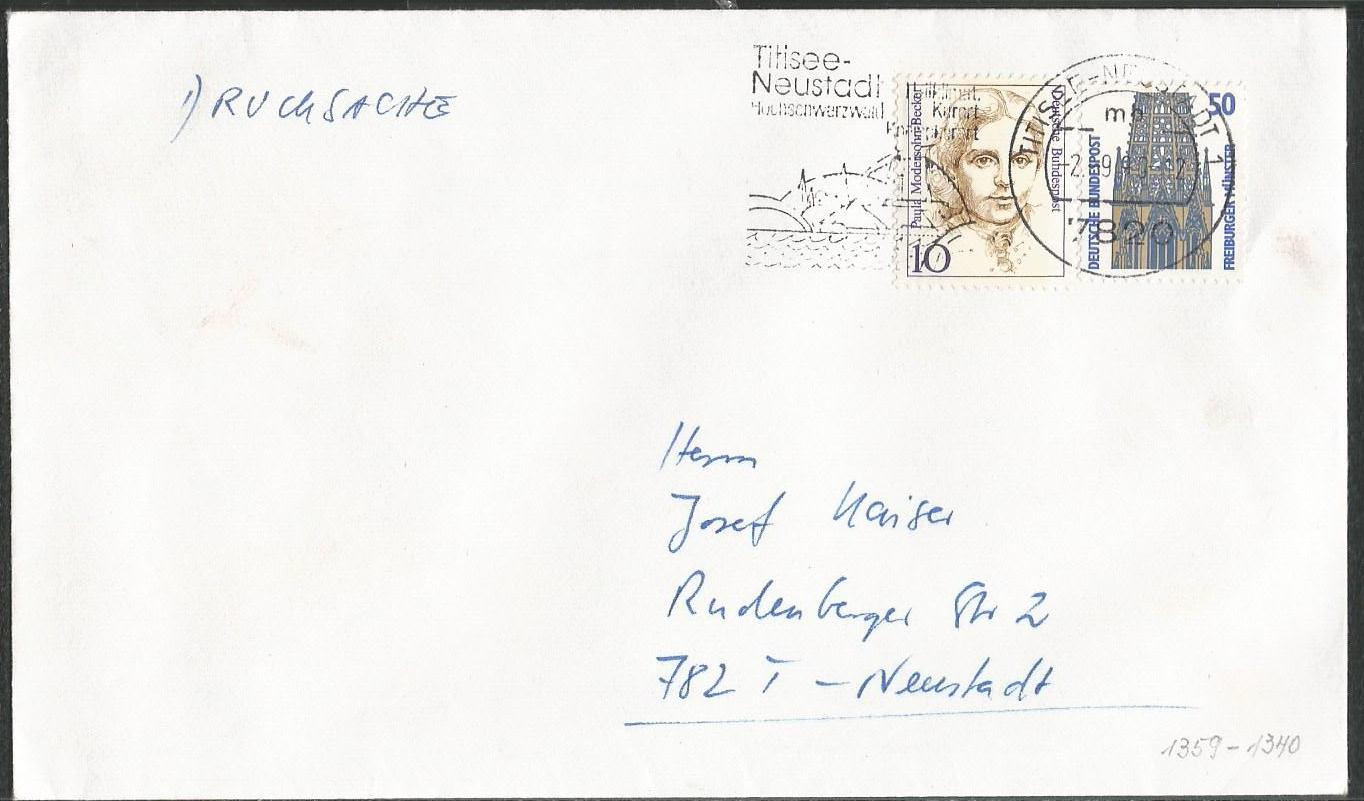 DRUCKSACHE
Titisee-
Neustadt
Hochschwarzwald
Heilklimat.
Kurort
Kneippkurort
Paula Modersohn-Becker
Deutsche Bundespost
10
TITISEE-NEUSTADT 1
mb
7820
50
DEUTSCHE BUNDESPOST
FREIBURGER MÜNSTER
Herrn
Josef Kaiser
Rudenberger Str 2
782 T - Neustadt
1359-1340